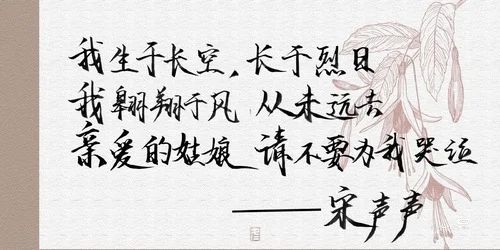 我生于长空,长于烈日
我翱翔于风 从未远去
亲爱的姑娘 请不要为我哭泣
——宋声声